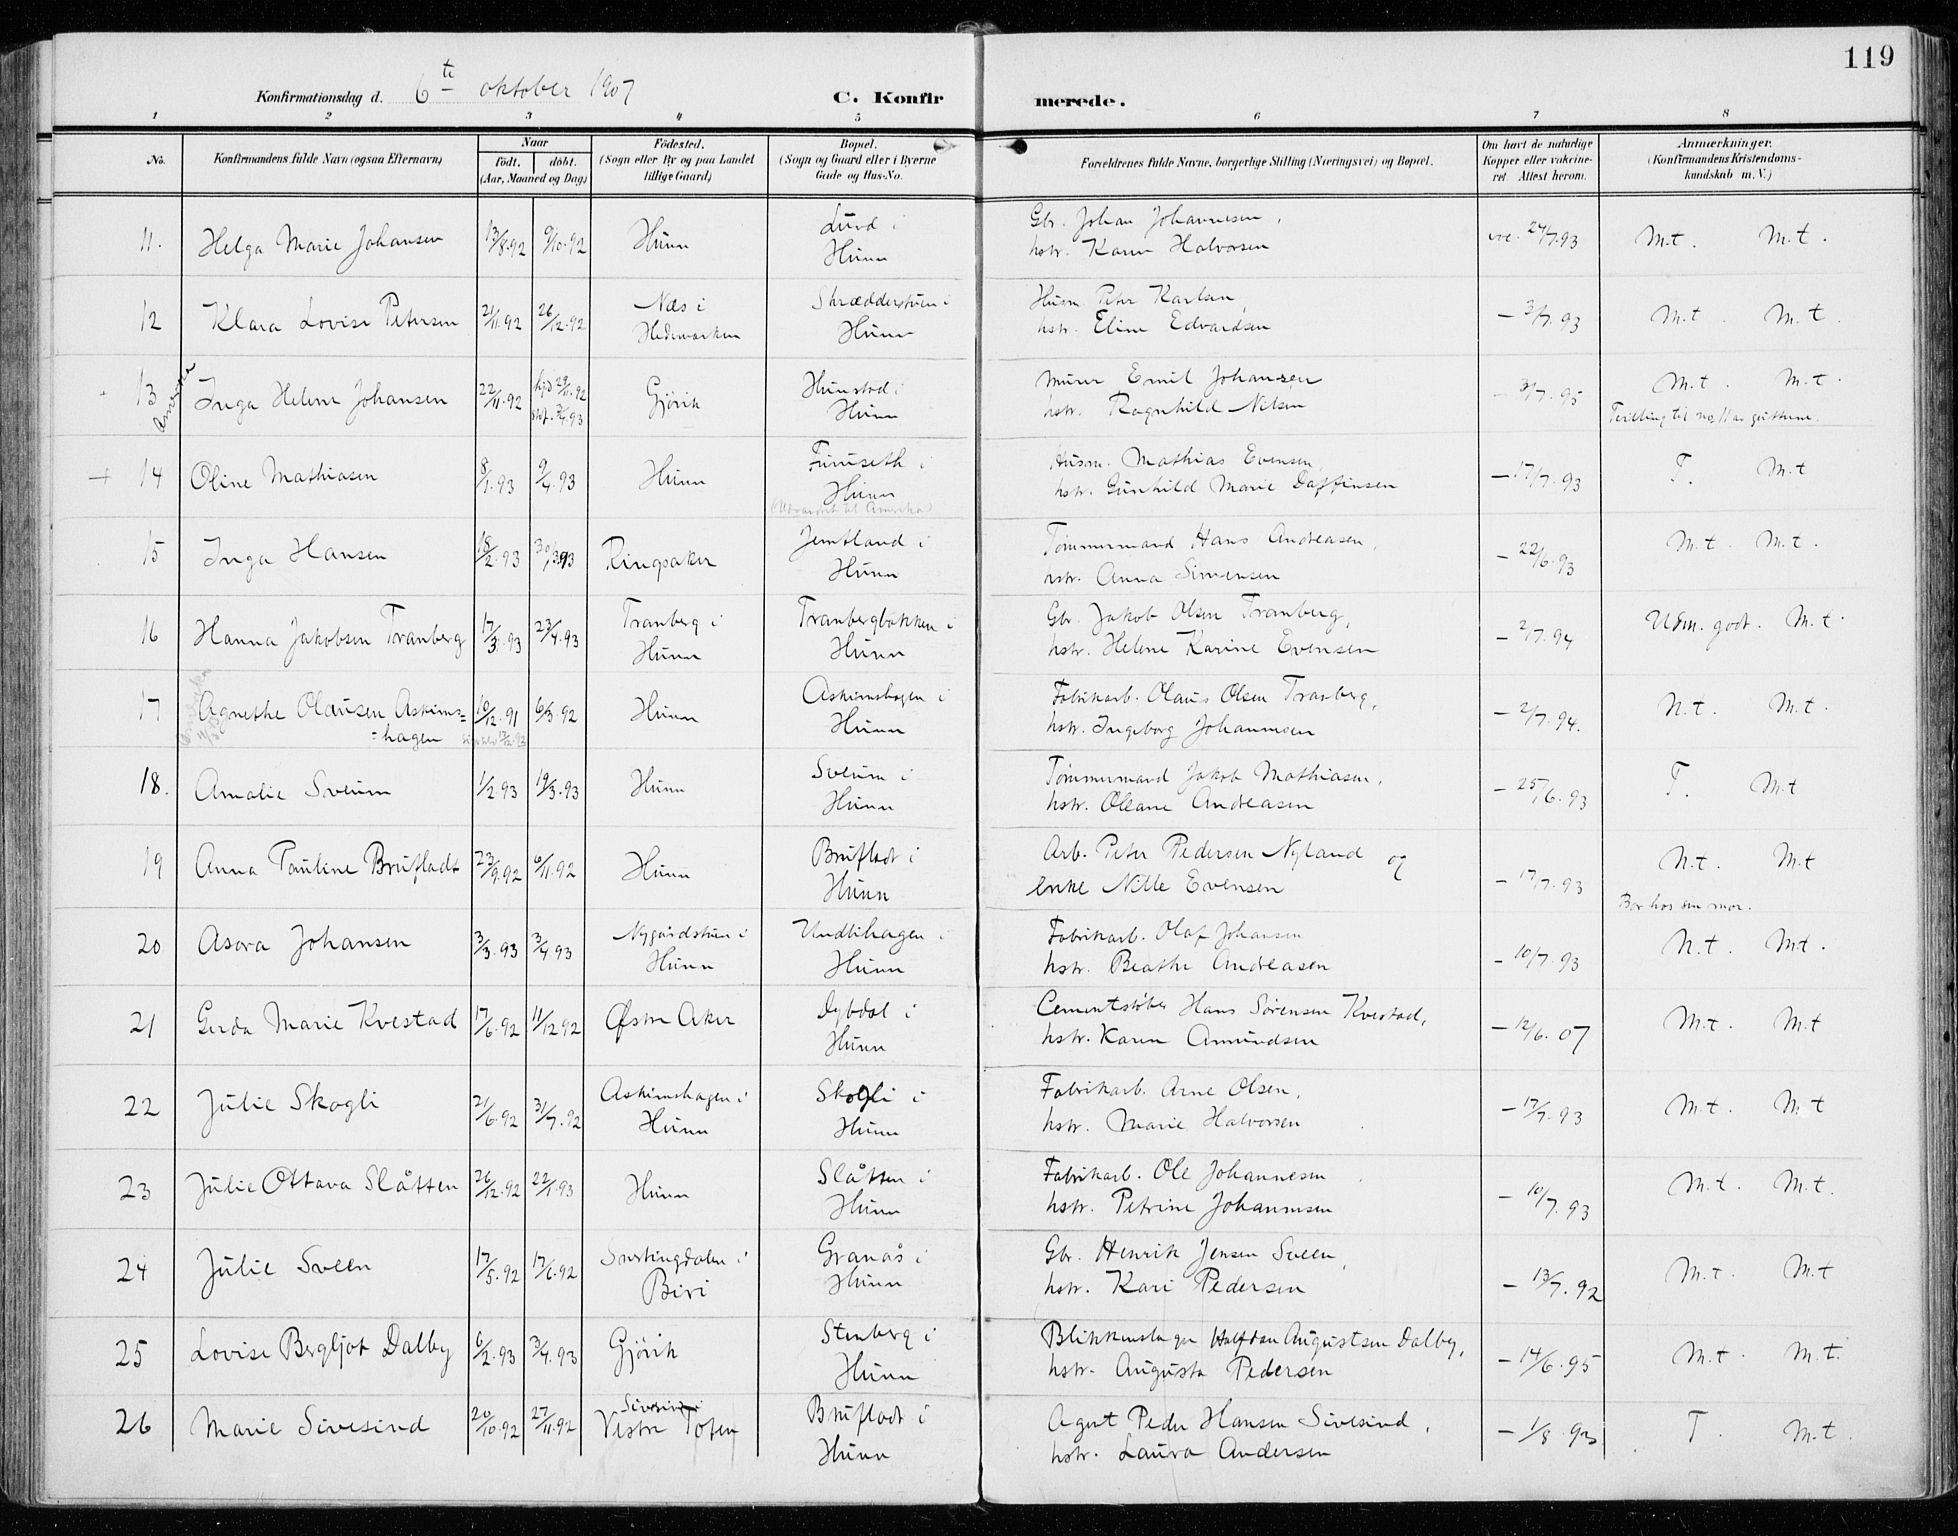 119
Konfirmationsdag d. 6te oktober 1907 C. Konfirmerede.
1 2 3 4 5 6 7 8
No. Konfirmandens fulde Navn (ogsaa Efternavn) Naar født. døbt. (Aar, Maaned og Dag) Fødested. (Sogn eller By og paa Landet tillige Gaard) Bopæl. (Sogn og Gaard eller i Byerne Gade og Hus-No. Forældrenes fulde Navne, borgerlige Stilling (Næringsvei) og Bopæl. Om havt de naturlige Kopper eller vakcineret. Attest herom. Anmærkninger. (Konfirmandens Kristendomskundskab m. V.)
11. Helga Marie Johansen 13/8.92 9/10.92 Hunn Lund i Gbr. Johan Johannesen, vac. 24/7.93 M.t. M.t.
Hunn hstr. Karen Halvorsen
12 Klara Lovise Petersen 21/11.92 26/12.92 Næs i Skrædderstuen i Husm. Peter Karlsen, - 3/7.93 M.t. M.t.
Hedemarken Hunn hstr. Eline Edvardsen
13 Inga Helene Johansen 22/11.92 29/11.92 Gjövik Hunstad i Murer Emil Johansen - 3/7.95 M.t. M.t.
Hunn hstr. Ragnhild Nilsen Tvilling til no. 11 av guttene.
+ 14 Oline Mathiasen 8/1.93 9/4.93 Hunn Furuseth i Husm. Mathias Evensen, - 17/7.93 T. M.t
Hunn hstr. Gunhild Marie Daffinsen
(Udvandret til Amerika)
15 Inga Hansen 18/2.93 Ringsaker Jemtland i Tømmermand Hans Andreasen, - 22/6.93 M.t. M.t.
Hunn hstr. Anna Simensen
16 Hanna Jakobsen Tranberg 17/3.93 23/4.93 Tranberg i Tranbergbakken i Gbr. Jakob Olsen Tranberg, - 2/7.94 Udm. godt. M.t.
Hunn Hunn hstr. Helene Karine Evensen
17 Agnethe Olausen Askims= 10/12.91 6/3.92 Hunn Askimshagen i Fabrikarb. Olaus Olsen Tranberg, - 2/7.94. N.t. M.t.
=hagen Hunn hstr. Ingeborg Johannesen
18. Amalie Sveum 1/2.93 19/3.93 Hunn Sveum i Tømmermand Jakob Mathiasen, - 25/6.93 T. M.t
Hunn hstr. Oleane Andreasen
19 Anna Pauline Brufladt 23/9.92 6/11.92 Hunn Brufladt i Arb. Peter Pedersen Nyland og - 17/7.93 N.t. M.t
Hunn enke Nille Evensen Bor hos sin mor.
20 Asora Johansen 3/3.93 3/4.93 Nygårdstuen i Undlihagen i Fabrikarb. Olaf Johansen - 10/7.93 N.t. M.t.
Hunn Hunn hstr. Beathe Andreasen
21 Gerda Marie Kvestad 17/6.92 11/12.92 Østre Aker Dybdal i Cementstøber Hans Sørensen Kvestad, - 12/6.07 M.t. M.t
Hunn hstr. Karen Amundsen
22 Julie Skogli 21/6.92 31/7.92 Askimshagen i Skogli i Fabrikarb. Arne Olsen, - 17/7.93 M.t. M.t
Hunn Hunn hstr. Marie Halvorsen
23 Julie Ottava Slåtten 26/12.92 22/1.93 Hunn Slåtten i Fabrikarb. Ole Johannesen - 10/7.93 M.t. M.t.
Hunn hstr. Petrine Johannesen
24 Julie Sveen 17/5.92 17/6.92 Snertingdalen i Granås i Gbr. Henrik Jensen Sveen, - 13/7.92 M.t. M.t
Biri Hunn hstr. Kari Pedersen
25 Lovise Bergljot Dalby 6/2.93 3/4.93 Gjövik Stenberg i Blikkenslager Halfdan Augustsen Dalby, - 14/6.95 M.t. M.t.
Hunn hstr. Augusta Pedersen
26 Marie Sivesind 20/10.92 27/11.92 Sivesind i Brufladt i Agent Peder Hansen Sivesind, - 1/8.93 T. M.t.
Vestre Toten Hunn hstr. Laura Andersen